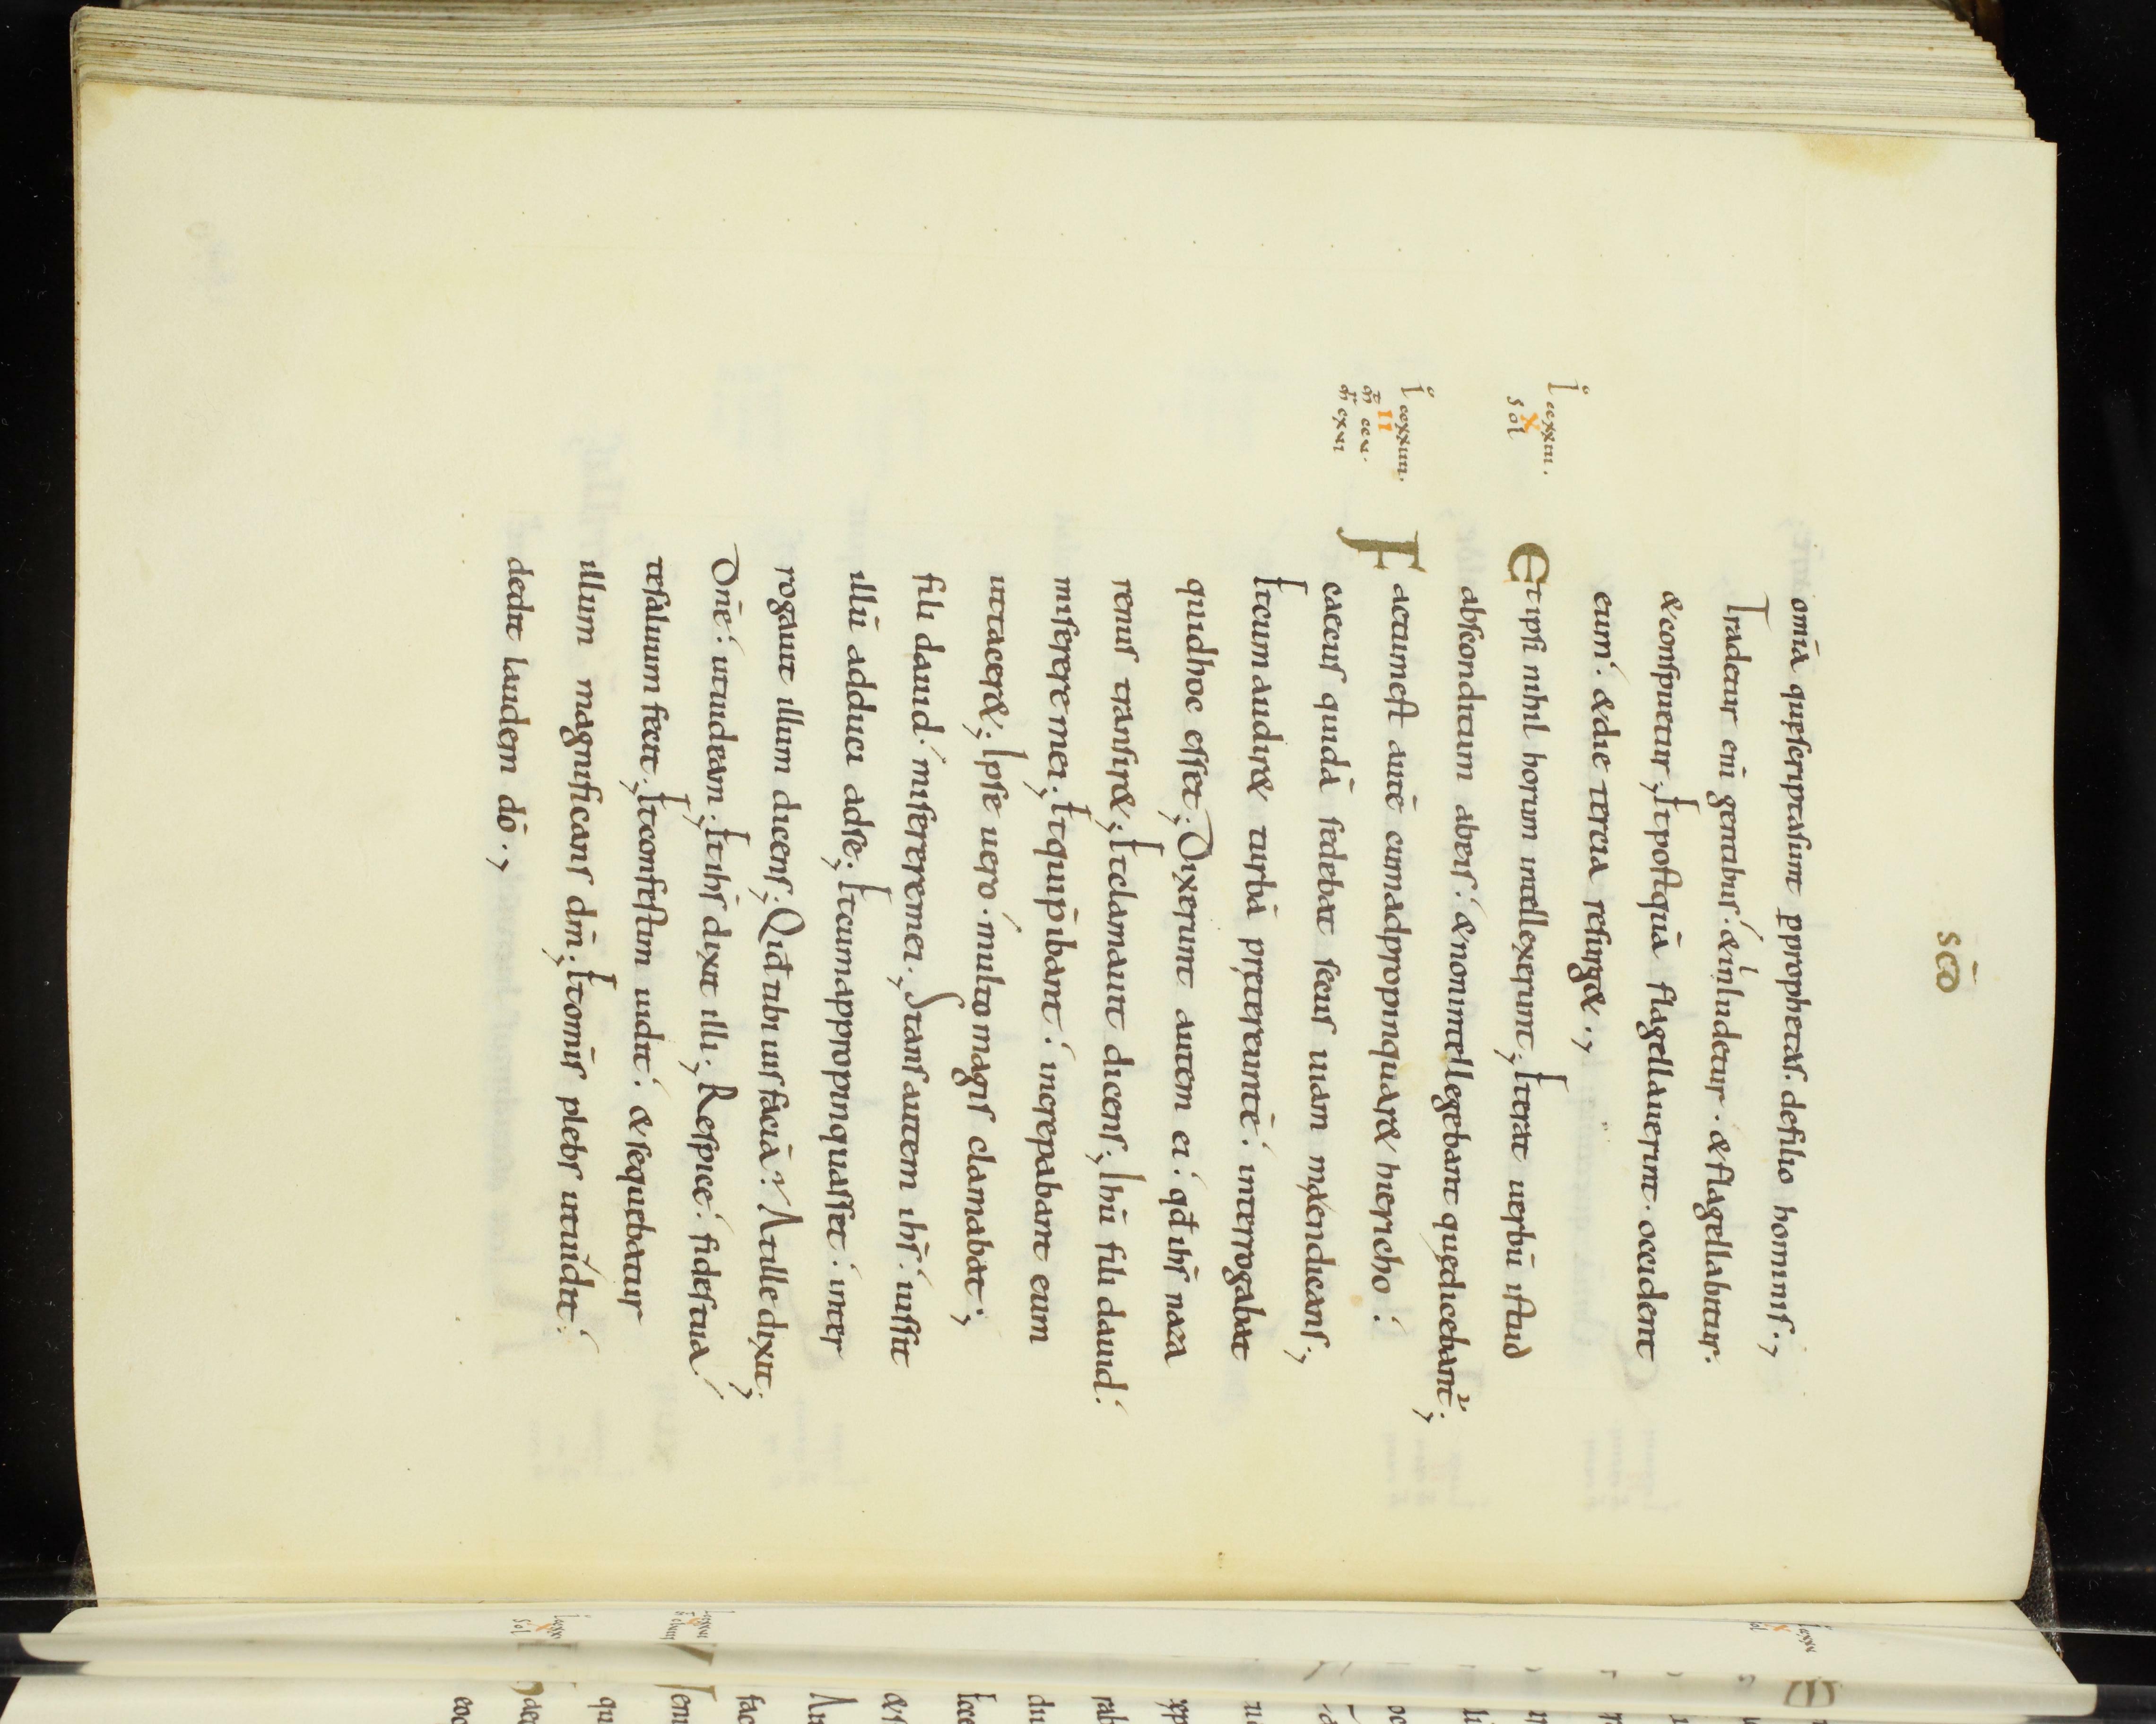 scō
omīa quęscriptasunt ꝑprophetas. defilio hominis.,
Tradetur enī gentibus. & inludetur. & flagellabitur.
& conspuetur., Et postquā flagellauerint. occident
eum. & die tercia resurg&.,
lͦ ccxxiii.
x
sol
Et ipsi nihil horum intellexerunt., Et erat uerbū istud
absconditum abeis. & nonintellegebant quędicebant.,
lͦ ccxxiiii.
II
Factumest autē cumadpropinquar& hiericho.
caecus quidā sedebat secus uiam mendicans.,
Et cum audir& turbā prętereuntē. interrogabat
quidhoc esset., Dixerunt autem ei. qđ ihs̄ naza
renus transir&., Et clamauit dicens., Ihū fili dauid.
miserere mei., Et quip̄ibant. increpabant eum
uttacer&., Ipse uero. multo magis clamabat.,
fili dauid. miserere mei., Stans autem ihs̄. iussit
illū adduci adse., Et cum appropinquasset. inter
rogauit illum dicens., Qid tibi uis faciā? Atille dixit.,
Dn̄e. ut uideam., Et ihs̄ dixit illi., Respice. fides tua
tesaluum fecit., Et confestim uidit. & sequebatur
illum magnificans dn̄m., Et omis̄ plebs utuidit.
dedit laudem dō.,